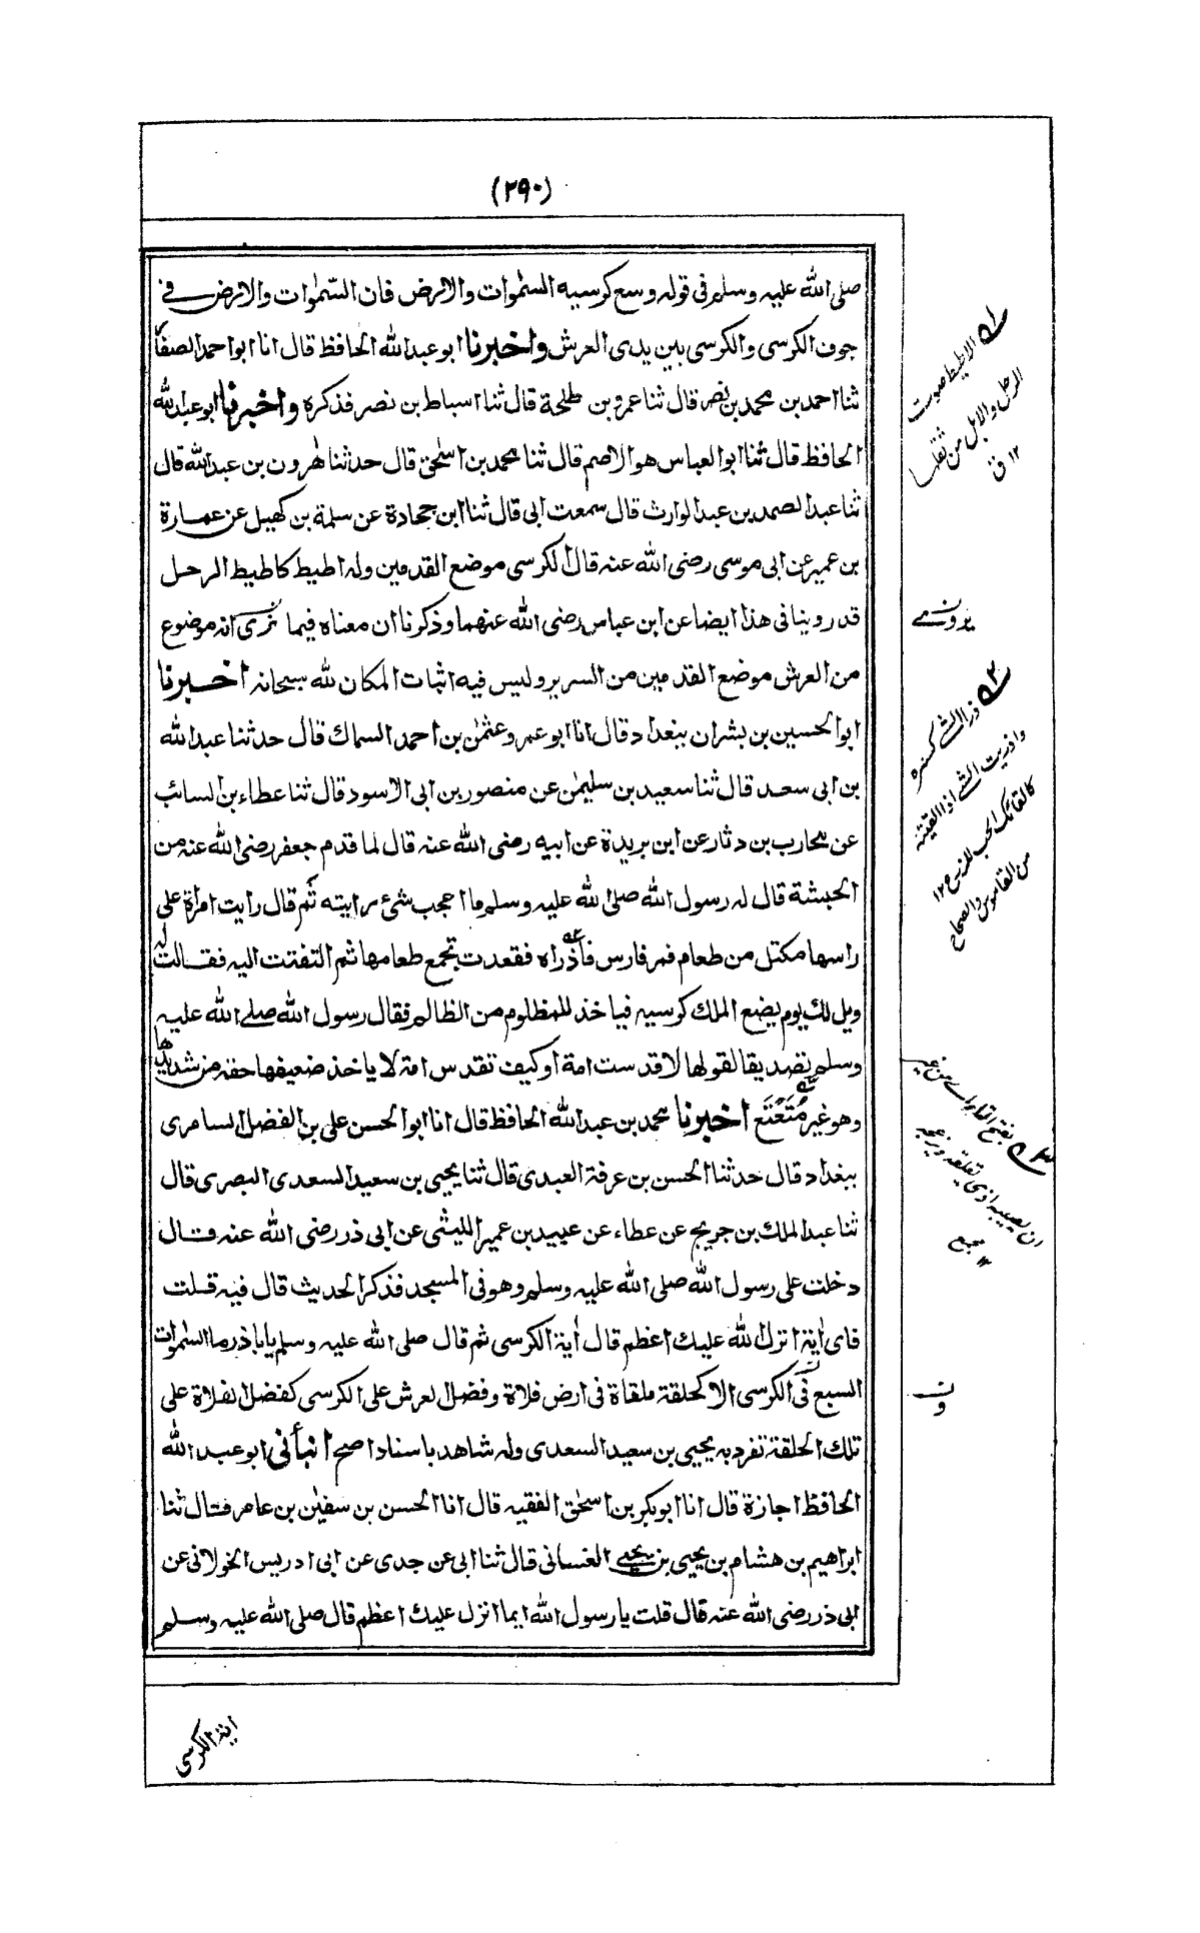 (۲۹۰)
صلى الله عليه وسلم فى قوله وسع كرسيه السمٰوات والارض فان السّمٰوات والارض فى
جوف الكرسى والكرسى بين يدى العرش واخبرنا ابو عبد الله الحافظ قال انا ابو احمد الصفار
ثنا احمد بن محمد بن نصر قال ثنا عمرو بن طلحة قال ثنا اسباط بن نصر فذكره واخبرنا ابو عبد الله
الحافظ قال ثنا ابو العباس هو الاصم قال ثنا محمد بن اسحٰق قال حدثنا هٰرون بن عبد الله قال
ثنا عبد الصمد بن عبد الوارث قال سمعت ابى قال ثنا ابن جحادة عن سلمة بن كهيل عن عمارة
بن عمير عن ابى موسى رضى الله عنه قال الكرسى موضع القدمين وله اطيط كاطيط الرحل
قد روينا فى هذا ايضا عن ابن عباس رضى الله عنهما وذكرنا ان معناه فيما نرى انه موضوع
من العرش موضع القدمين من السرير وليس فيه اثبات المكان لله سبحانه اخبرنا
ابو الحسين بن بشران ببغداد قال انا ابو عمرو عثمٰن بن احمد السماك قال حدثنا عبد الله
بن ابى سعد قال ثنا سعيد بن سليمٰن عن منصور بن ابى الاسود قال ثنا عطاء بن السائب
عن محارب بن دثار عن ابن بريدة عن ابيه رضى الله عنه قال لما قدم جعفر رضى الله عنه من
الحبشة قال له رسول الله صلى الله عليه وسلم ما اعجب شئ رايته ثَم قال رايت امراة على
راسها مكتل من طعام فمر فارس فاذراه فقعدت تجمع طعامها ثم التفتت اليه فقالت له
ويل لك يوم يضع الملك كرسيه فياخذ للمظلوم من الظالم فقال رسول الله صلى الله عليه
وسلم تصديقا لقولها لا قدست امة او كيف تقدس امة لا ياخذ ضعيفها حقه من شديدها
وهو غير مُتَعْتَع اخبرنا محمد بن عبد الله الحافظ قال انا ابو الحسن على بن الفضل السامرى
ببغداد قال حدثنا الحسن بن عرفة العبدى قال ثنا يحيى بن سعيد السعدى البصرى قال
ثنا عبد الملك بن جريج عن عطاء عن عبيد بن عمير الليثى عن ابى ذر رضى الله عنه قال
دخلت على رسول الله صلى الله عليه وسلم وهو فى المسجد فذكر الحديث قال فيه قلت
فاى اٰية انزل الله عليك اعظم قال اٰية الكرسى ثم قال صلى الله عليه وسلم يا با ذر ما السمٰوات
السبع فى الكرسى الا كحلقة ملقاة فى ارض فلاة وفضل العرش على الكرسى كفضل الفلاة على
تلك الحلقة تفرد به يحيى بن سعيد السعدى وله شاهد باسناد اصح انبأنى ابو عبد الله
الحافظ اجازة قال انا ابو بكر بن اسحٰق الفقيه قال انا الحسن بن سفيٰن بن عامر قال ثنا
ابراهيم بن هشام بن يحيى بن يحيى الغسانى قال ثنا ابى عن جدى عن ابى ادريس الخولانى عن
ابى ذر رضى الله عنه قال قلت يا رسول الله ايما انزل عليك اعظم قال صلى الله عليه وسلم
اية الكرسى
۱ الاطيط صوت
الرحل والابل من ثقلها
۱۲ ق
۲ ذرا الشئ كسره
واذريت الشئ اذا القيته
كالقائك الحب للزرع ۱۲
من القاموس والصحاح
۳ بفتح التاء اى من غير
ان يصيبه اذى يقلقه ويزعجه
۱۲ مجمع